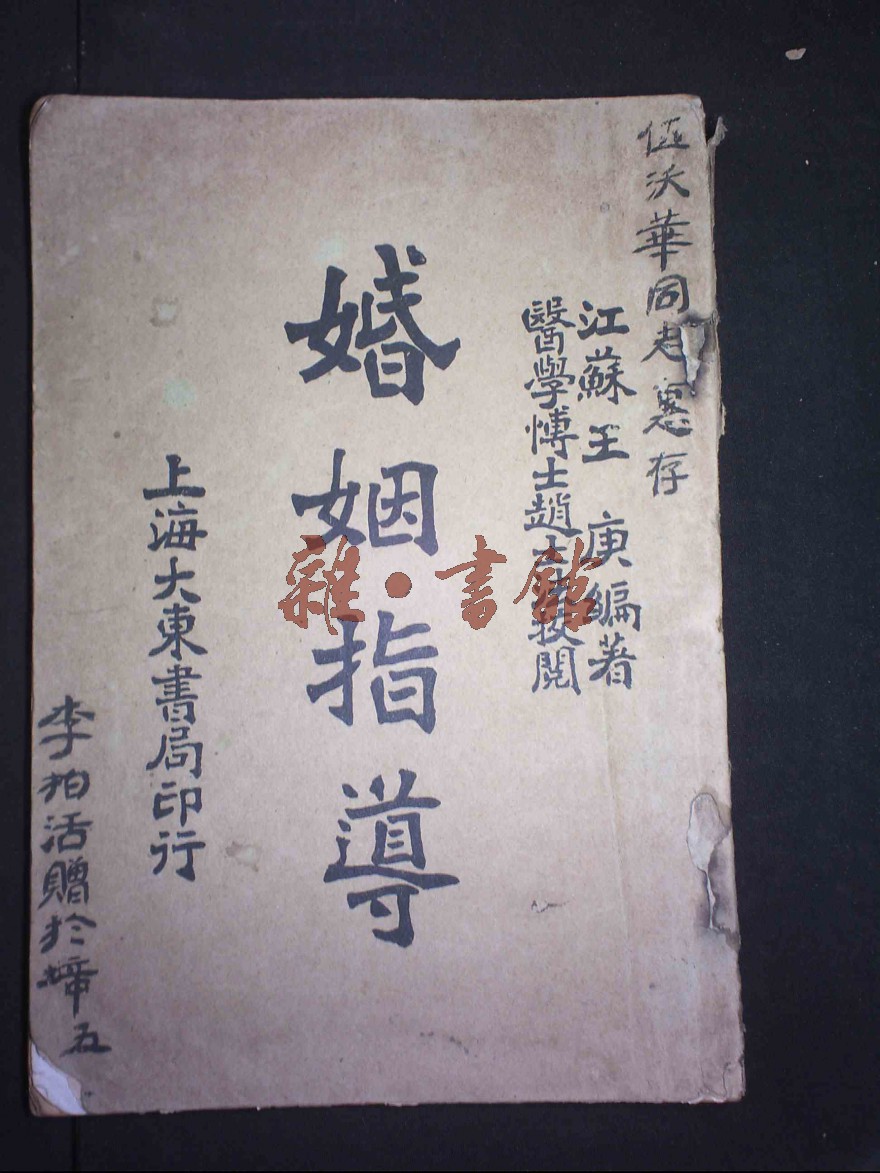 伍沃華同志惠存
江蘇王庚編著
醫學博士趙士法校閱
婚姻指導
上海大東書局印行
李柏活贈於埠五
雜•書館